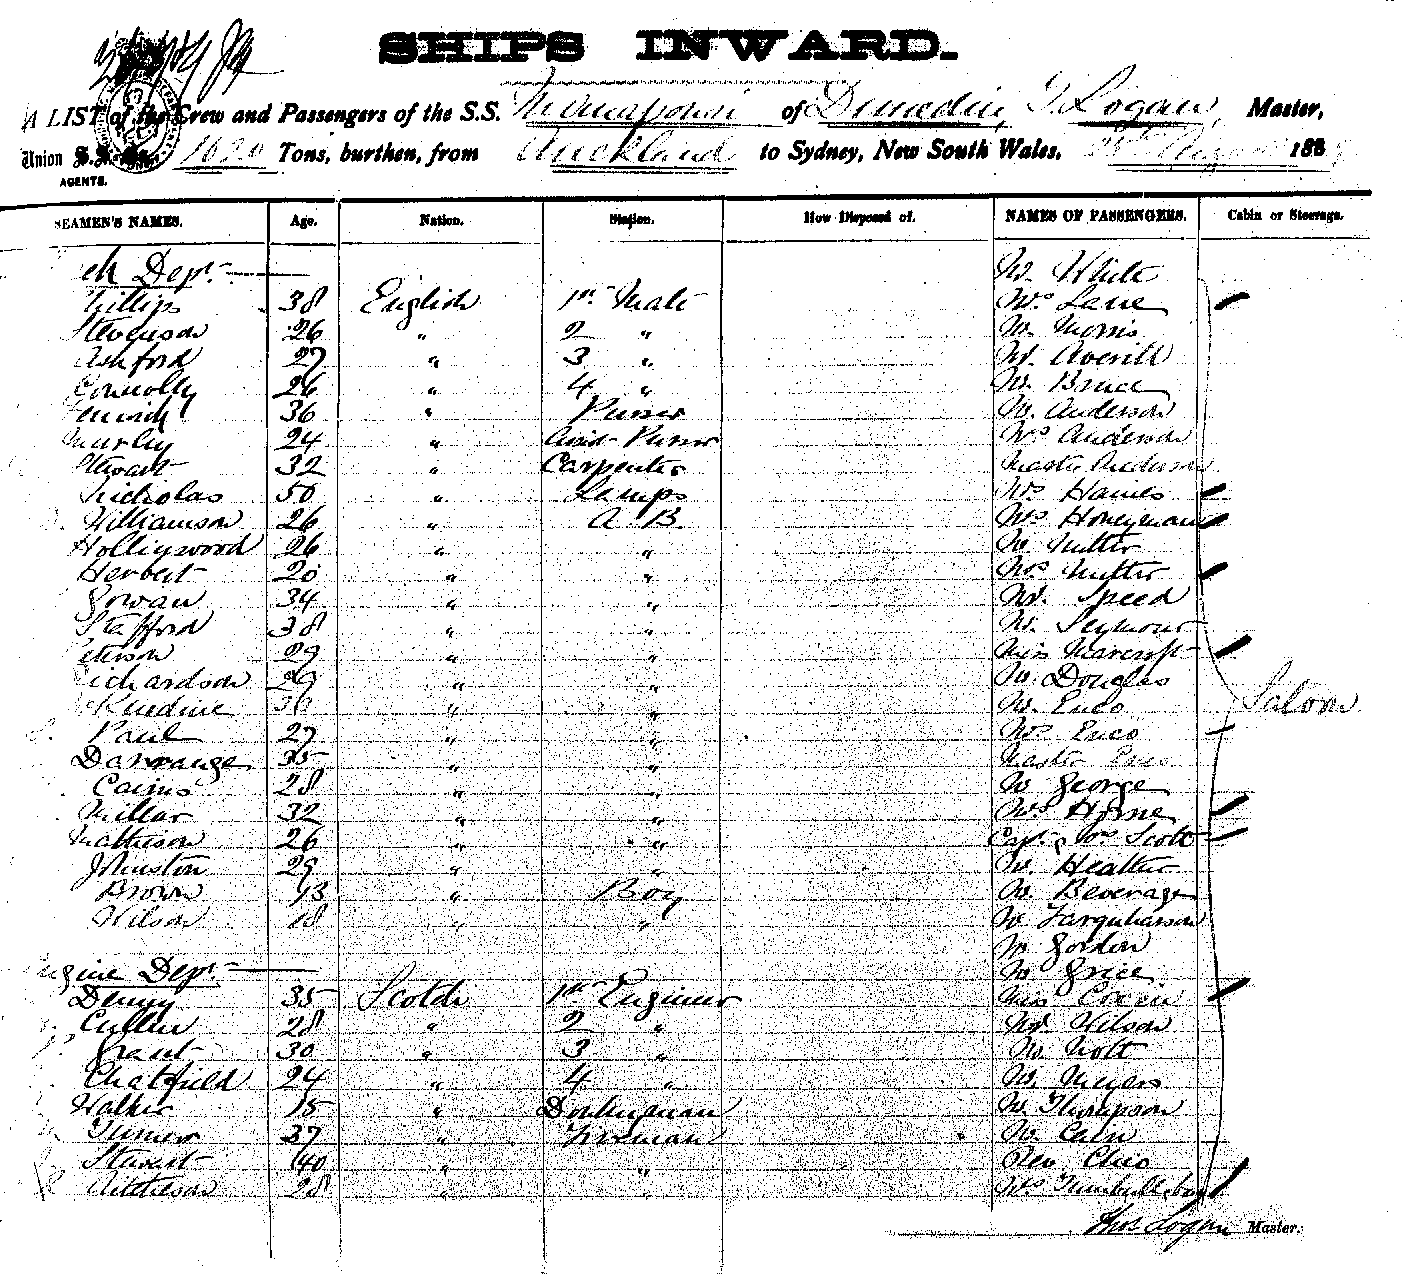 SHIPS INWARD.
A LIST of the Crew and Passengers of the S.S. Manapouri of Dunedin, T. Logan, Master,
Union S.S. 1020 Tons, burthen, from Auckland to Sydney, New South Wales, 188
AGENTS.
SEAMEN'S NAMES. Age. Nation. Station. How Disposed of. NAMES OF PASSENGERS. Cabin or Steerage.
Dept. Mr. White
Phillips 38 English 1st Mate Mrs Lane
Stevenson 26 " 2 " Mr. Morris
Ashford 27 " 3 " Mr. Averill
Connolly 26 " 4 " Mr. Bruce
36 " Purser Mr. Anderson
24 " Assist Purser Mrs Anderson
Stewart 32 " Carpenter Master Anderson
Nicholas 50 " Lamps Mrs Haines
Williamson 26 " A B. Mrs Honeyman
Hollingwood 26 " " Mr Nutter
Herbert 20 " " Mrs Nutter
Gowan 34 " " Mr. Speed
Stafford 38 " " Mr. Seymour
Peterson 29 " " Miss
Richardson 29 " " Mr. Douglas
" " Mr. Enco Saloon
Paul 27 " " Mrs Enco
35 " " Master Enco
Cairns 28 " " Mr George
Millar 32 " " Mrs Horne
Mathieson 26 " " Capt. & Mrs Scott
Johnston 29 " " Mr. Heather
Brown 13 " Boy Mr. Beverage
Wilson 18 " " Mr Farquharson
Mr Gordon
Engine Dept. Mr Grice
Denny 35 Scotch 1st Engineer Miss
Cullen 28 " 2 " Mr. Wilson
Grant 30 " 3 " Mr. Nott
Chatfield 24 " 4 " Mr. Meyers
Walker 15 " Donkeyman Mr Thompson
Turner 37 " Fireman Mr. Cain
Stewart 40 " " Rev
Aitchison 28 " " Mrs
Thos Logan Master.